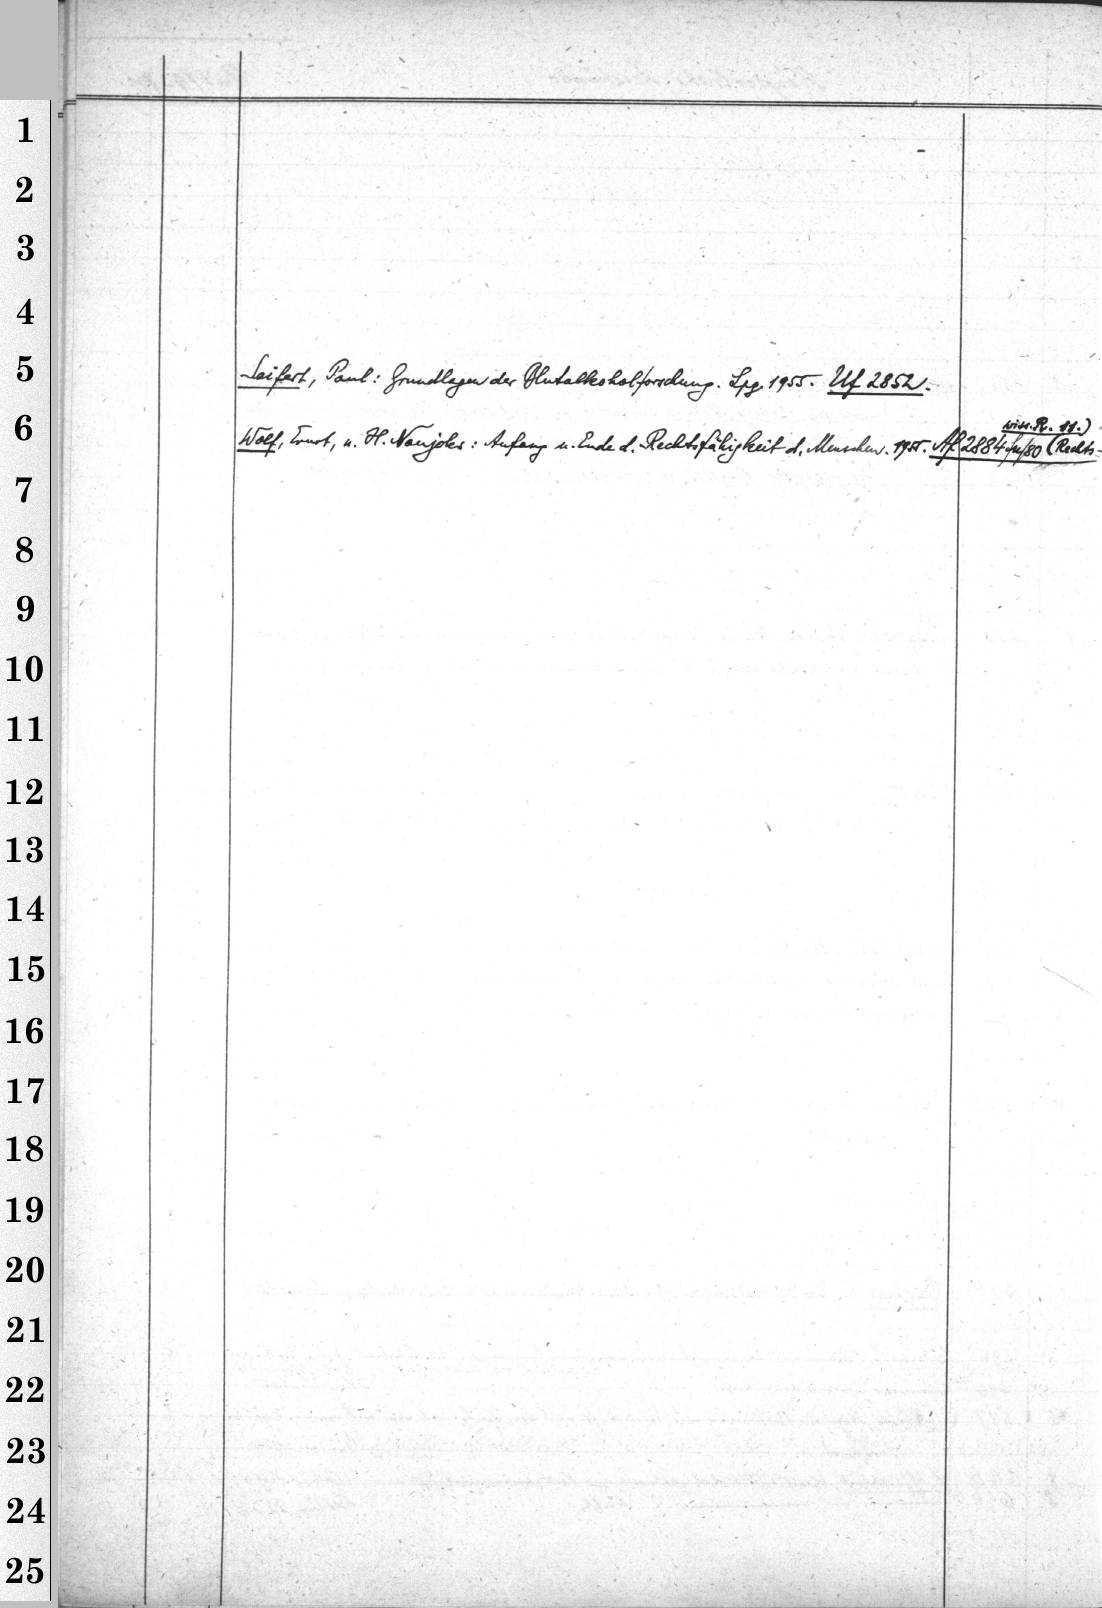 1
2
3
4
5
Seifert, Paul: Grundlagen der Blutalkoholforschung. Lpz. 1955. Uf 2852.
6
wiss. Pr. 11.)
Wolf, Ernst, u. H. Naujoks: Anfang u. Ende d. Rechtsfähigkeit d. Menschen. 1955. Af 2884 /80 (Rechts-
7
8
9
10
11
12
13
14
15
16
17
18
19
20
21
22
23
24
25